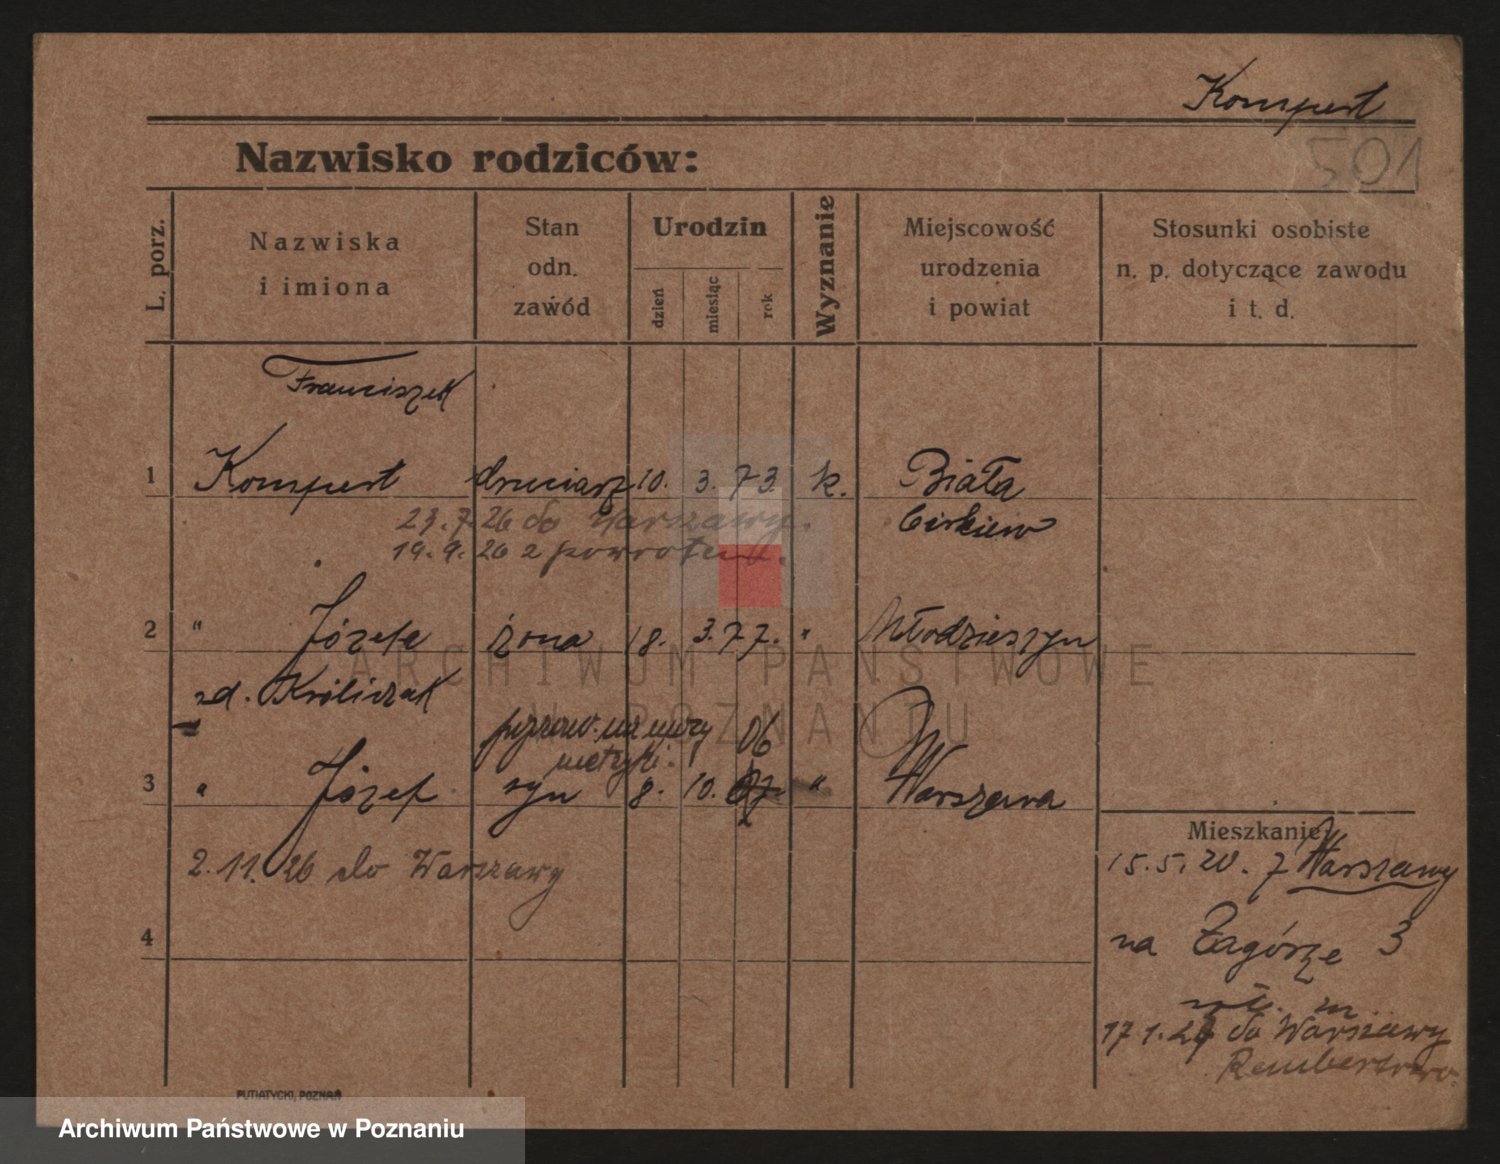 Kompert
501
Nazwisko rodziców:
L. porz.
Nazwiska
i imiona
Stan
odn.
zawód
Urodzin
dzień
miesiąc
rok
Wyznanie
Miejscowość
urodzenia
i powiat
Stosunki osobiste
n. p. dotyczące zawodu
i t. d.
Franciszek
1 Kompert druciarz 10. 3. 73. k. Biała
23. 7. 26 do Warszawy.
19. 9. 26 z powrotem.
2 " Józefa żona 18. 3. 77. " Młodzieszyn
zd. Króliczak
metryki. 06
3 " Józef syn 8. 10. " Warszawa
Mieszkanie:
15.5.20. z Warszawy
2.11.26 do Warszawy
na Zagórze 3
4
17 1. do Warszawy
Rembertowo
PUTIATYCKI, POZNAŃ
ARCHIWUM PAŃSTWOWE
W POZNANIU
Archiwum Państwowe w Poznaniu